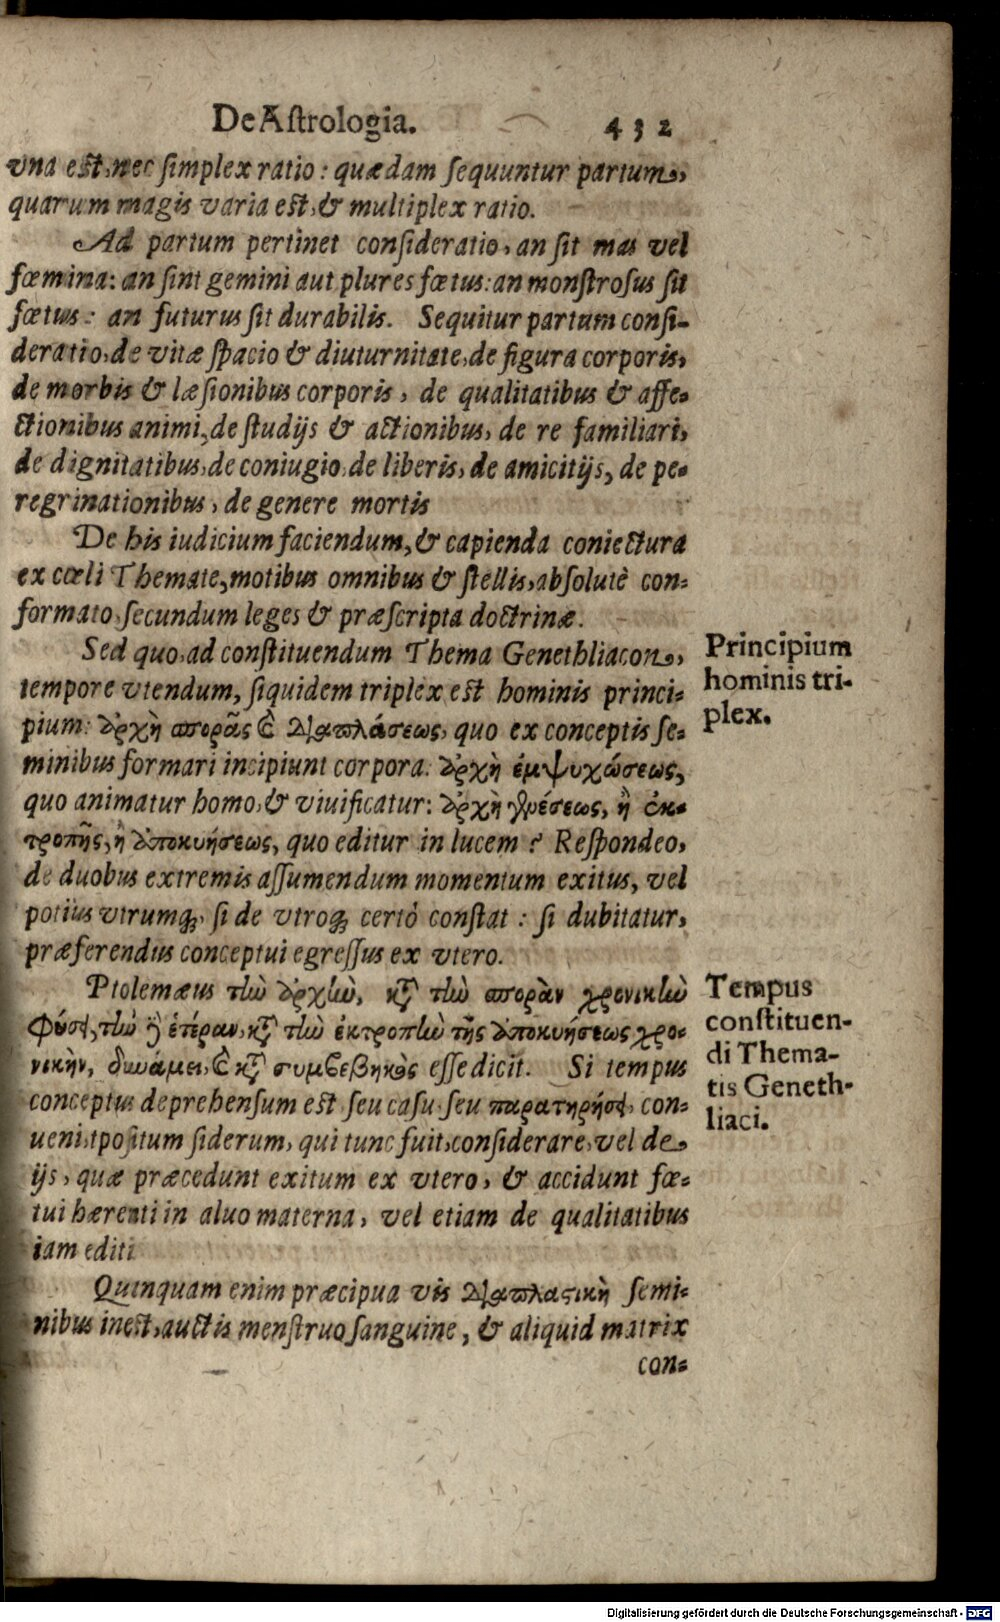 De Astrologia. 432
vna est, nec simplex ratio: quædam sequuntur partum,
quarum magis varia est, & multiplex ratio.
Ad partum pertinet consideratio, an sit mas vel
fœmina: an sint gemini aut plures fœtus: an monstrosus sit
fœtus: an futurus sit durabilis. Sequitur partum consi-
deratio, de vitæ spacio & diuturnitate, de figura corporis,
de morbis & læsionibus corporis, de qualitatibus & affe-
ctionibus animi, de studijs & actionibus, de re familiari,
de dignitatibus, de coniugio, de liberis, de amicitijs, de pe-
regrinationibus, de genere mortis
De his iudicium faciendum, & capienda coniectura
ex cœli Themate, motibus omnibus & stellis, absolutè con-
formato, secundum leges & præscripta doctrinæ.
Sed quo, ad constituendum Thema Genethliacon,
tempore vtendum, siquidem triplex est hominis princi-
pium: ἀρχὴ σπορᾶς καὶ διαπλάσεως, quo ex conceptis se-
minibus formari incipiunt corpora: ἀρχὴ ἐμψυχώσεως,
quo animatur homo, & viuificatur: ἀρχὴ γενέσεως, ἢ ἐκ-
τροπῆς, ἢ ἀποκυήσεως, quo editur in lucem? Respondeo,
de duobus extremis assumendum momentum exitus, vel
potius vtrumq;, si de vtroq; certò constat: si dubitatur,
præferendus conceptui egressus ex vtero.
Ptolemæus τὴν ἀρχὴν, κατὰ τὴν σπορὰν χρονικὴν
φύσει, τὴν δὲ ἑτέραν, κατὰ τὴν ἐκτροπὴν τῆς ἀποκυήσεως χρο-
νικὴν, δυνάμει, καὶ κατὰ συμβεβηκὸς esse dicit. Si tempus
conceptus deprehensum est seu casu seu παρατηρήσει, con-
uenit, positum siderum, qui tunc fuit, considerare, vel de
ijs, quæ præcedunt exitum ex vtero, & accidunt fœ-
tui hærenti in aluo materna, vel etiam de qualitatibus
iam editi
Quinquam enim præcipua vis διαπλαστικὴ semi-
nibus inest, auctis menstruo sanguine, & aliquid matrix
con-
Principium
hominis tri-
plex.
Tempus
constituen-
di Thema-
tis Geneth-
liaci.
Digitalisierung gefördert durch die Deutsche Forschungsgemeinschaft - DFG